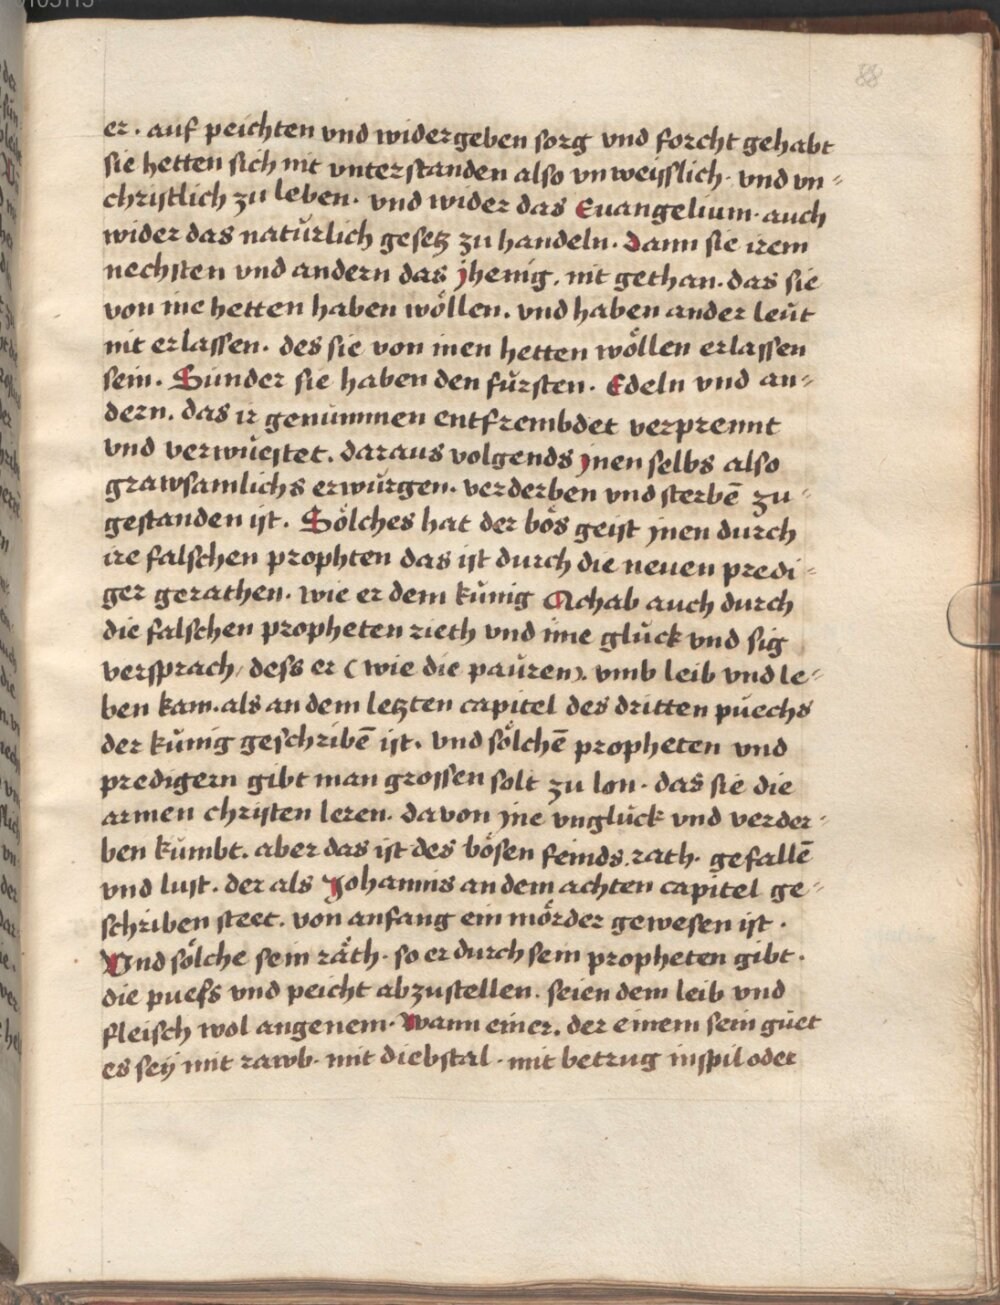 88
er. auf peichten vnd widergeben sorg vnd forcht gehabt
sie hetten sich nit vnterstanden also vnweisslich. vnd vn=
christlich zu leben. vnd wider das Euangelium. auch
wider das natürlich gesetz zu handeln. Dann sie irem
nechsten vnd andern das jhenig. nit gethan. das sie
von ine hetten haben wöllen. vnd haben ander leüt
nit erlassen. des sie von inen hetten wöllen erlassen
sein. Sunder sie haben den fürsten. Edeln vnd an=
dern. das ir genummen entfrembdet verprennt
vnd verwüestet. daraus volgends jnen selbs also
grawsamlichs erwürgen. verderben vnd sterbē zu=
gestanden ist. Sölches hat der bös geist jnen durch
ire falschen prophten das ist durch die neuen predi=
ger gerathen. wie er dem künig Achab auch durch
die falschen propheten rieth vnd ime glück vnd sig
versprach/ dess er (wie die paüren). vmb leib vnd le=
ben kam. als an dem letzten capitel des dritten püechs
der künig geschribē ist. vnd sölchē propheten vnd
predigern gibt man grossen solt zu lon. das sie die
armen christen leren. davon jne vnglück vnd verder=
ben kümbt. aber das ist des bösen feinds. rath. gefallē
vnd lust. der als Johannis an dem achten capitel ge=
schriben steet. von anfang ein mörder gewesen ist.
Vnd sölche sein räth. so er durch sein propheten gibt.
die puess vnd peicht abzustellen. seien dem leib vnd
fleisch wol angenem. Wann einer. der einem sein güet
es sey mit rawb. mit diebstal. mit betrug in spil oder